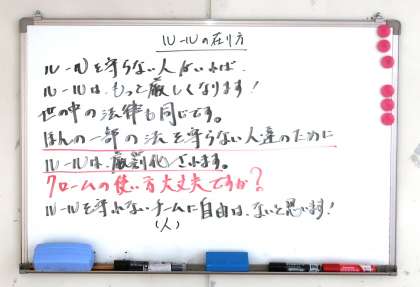 ルールの在り方
ルールを守らない人がいれば
ルールは、もって厳しくなります!
世の中の法律も同じです。
ほんの一部の法を守らない人達のために
ルールは、厳罰化されます。
クロームの使い方大丈夫ですか?
ルールを守れないチームに自由は、ないと思います!
(人)